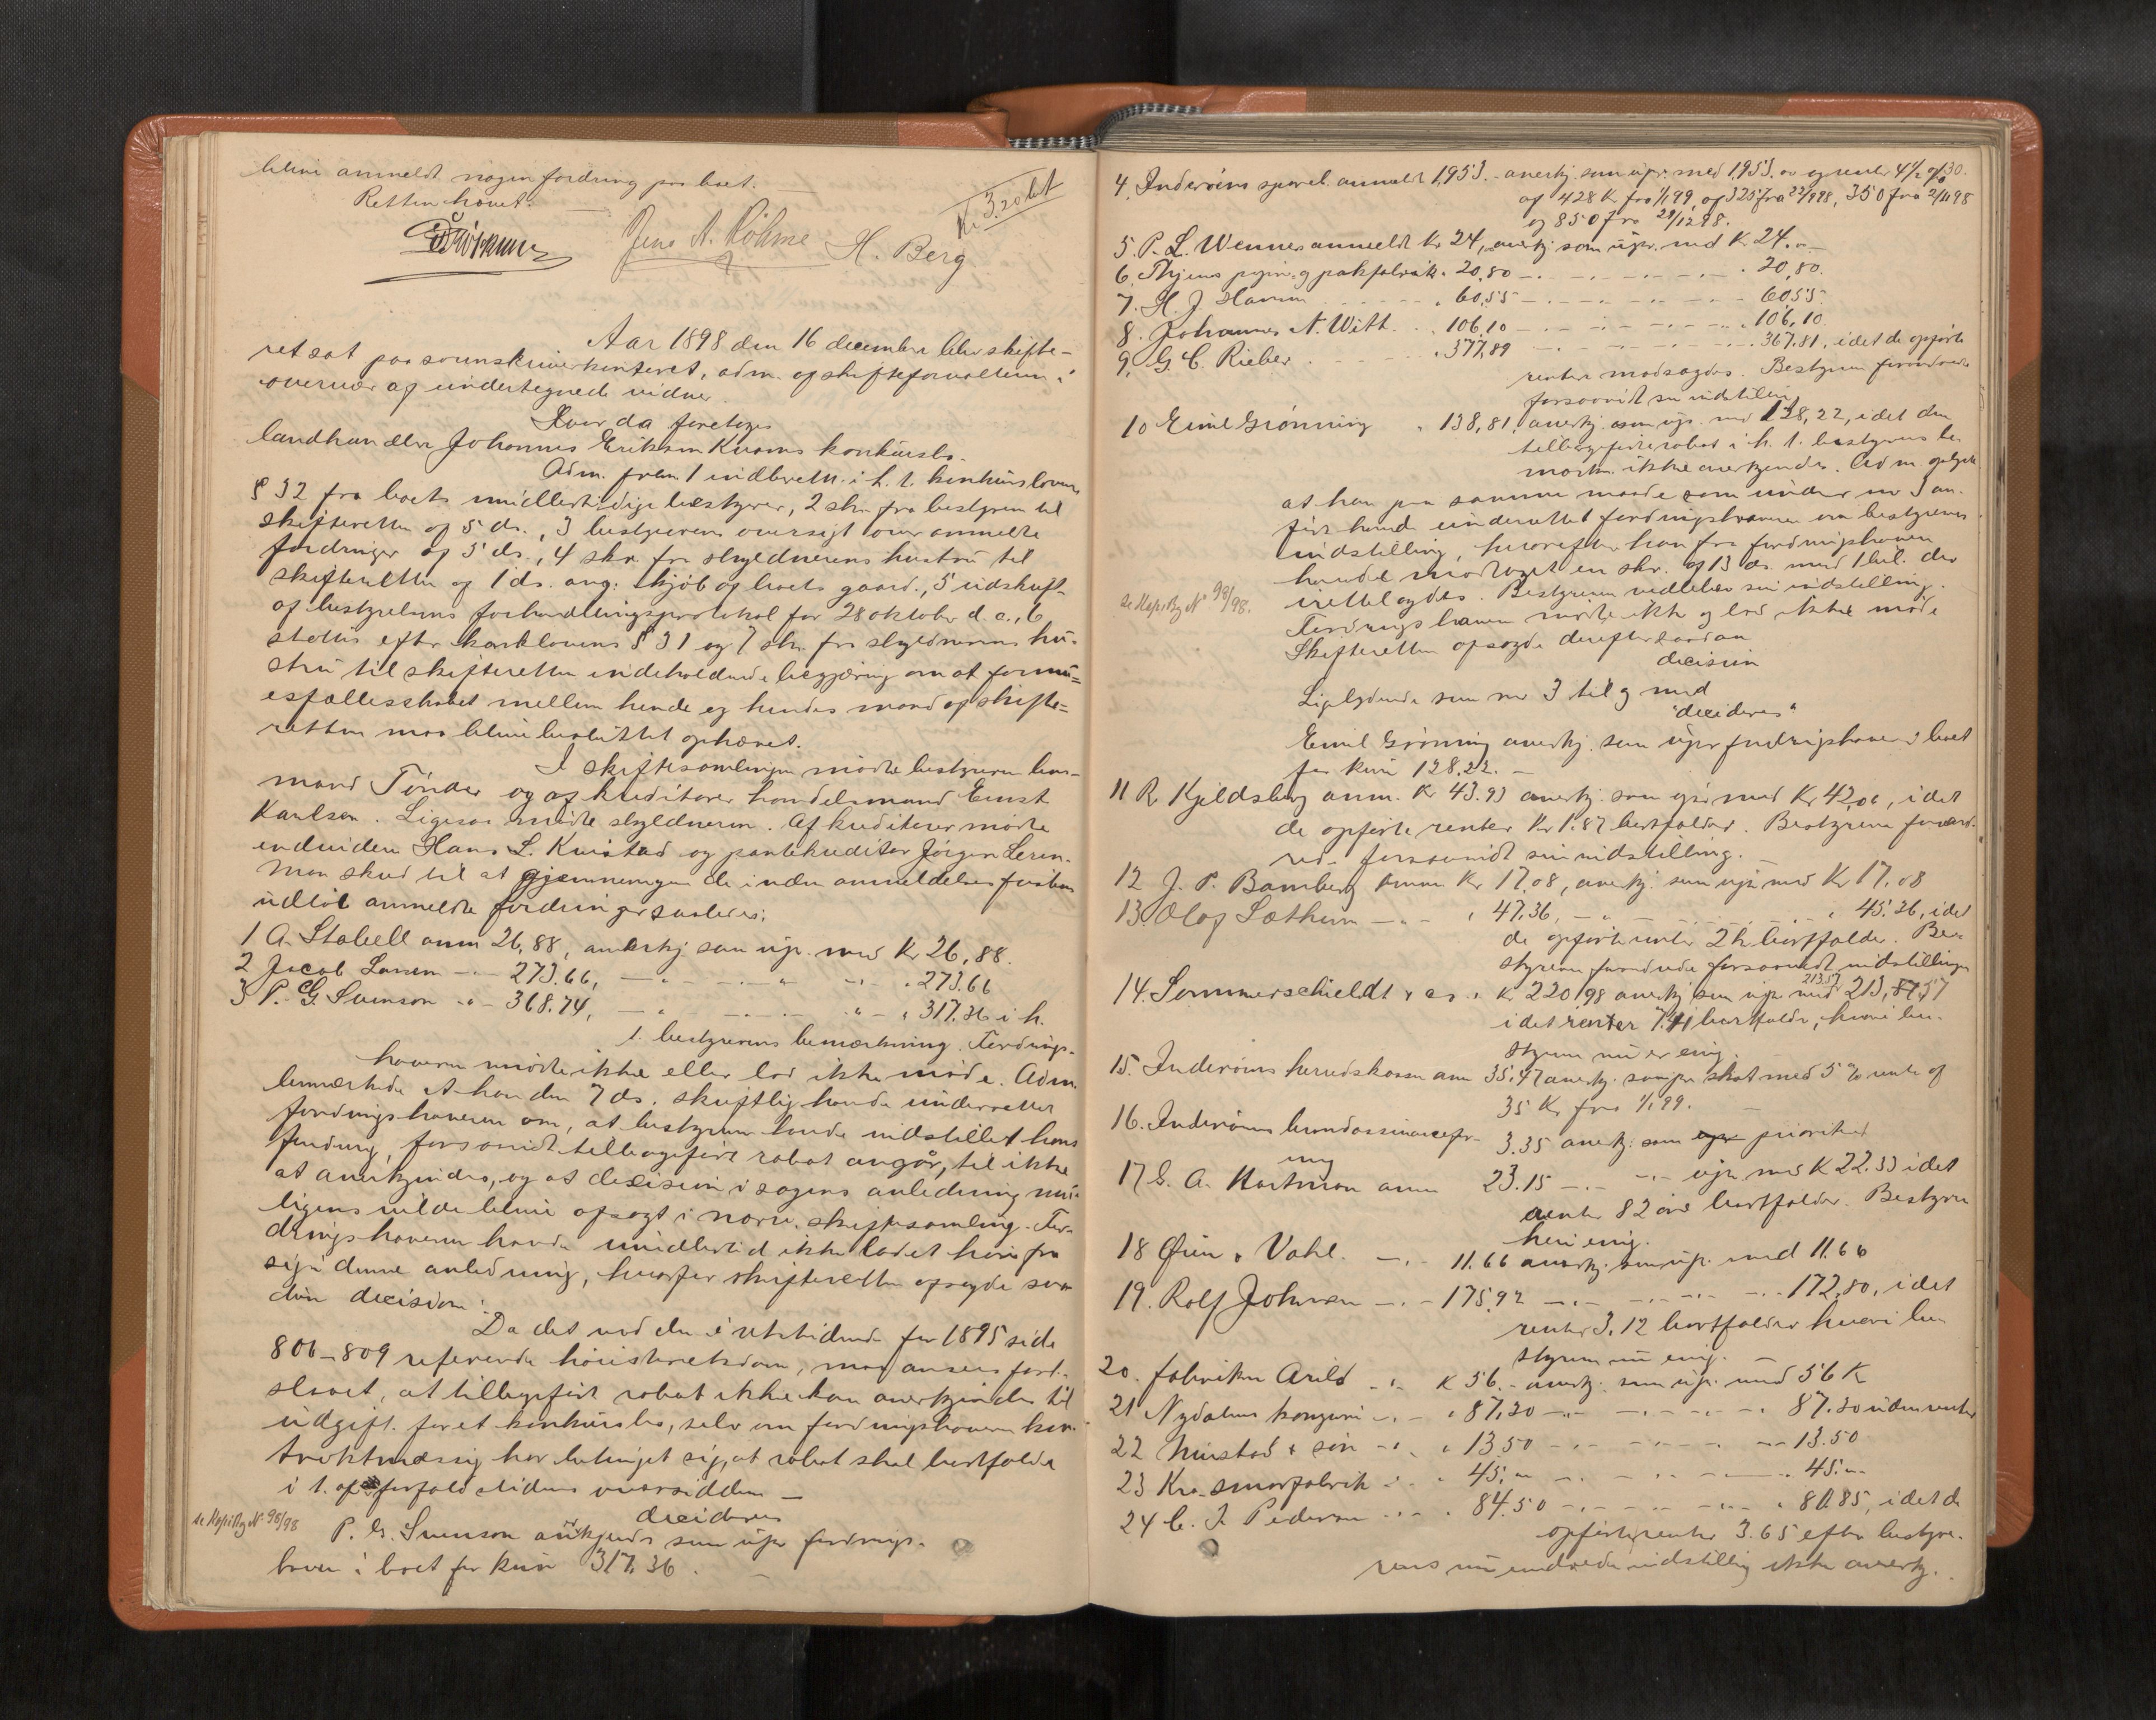 blive anmeldt nogen fordring paa boet.
Retten hævet.
Kr. 3.20 bet
Jens A. Röhme H. Berg
Aar 1898 den 16 december blev skifte-
ret sat paa sorenskriverkontoret, adm. af skifteforvalteren i
overvær af undertegnede vidner
Hvor da foretoges
landhandler Johannes Eriksen Kvams konkursbo.
Adm. frem. 1 indberetn. i h. t. konkurslovens
§ 32 fra boets midlertidige bestyrer, 2 skr. fra bestyren til
skifteretten af 5 ds., 3 bestyrerens oversigt over anmeldte
fordringer af 5 ds., 4 skr. fra skyldnerens hustru til
skifteretten af 1 ds. ang. kjøb af boets gaard., 5 udskrift
af bestyrelsens forhandlingsprotokol for 28 oktober d. a., 6
status efter konk.lovens § 31 og 7 skr. fra skyldnerens hu-
stru til skifteretten indeholdende begjæring om at formu=
esfællesskabet mellem hende og hendes mand af skifte=
retten maa blive besluttet ophævet.
I skiftesamlingen mødte bestyreren lens-
mand Tønder og af kreditorer handelsmand Ernst
Karlsen. Ligesaa mødte skyldneren. Af kreditorer mødte
endvidere Hans L. Kvistad og pantekreditor Jørgen Leren.
Man skred til at gjennemgaa de inden anmeldelsesfristens
udløb anmeldte fordringer saaledes:
1 A. Stabell anm 26,88, anerkj som upr. med Kr 26,88.
2 Jacob Larsen -"- 273.66, -"- -"- -"- " 273.66
3 P. G Svenson -"- 368.74, -"- -"- -"- " 317.36 i h.
t. bestyrerens bemærkning. Fordrings-
haveren mødte ikke eller lod ikke møde. Adm
bemærkede at han den 7 ds. skriftlig havde underrettet
fordringshaveren om, at bestyreren havde indstillet hans
fordring, forsaavidt tilbageført rabat angår, til ikke
at anerkjendes, og at decision i sagens anledning mu-
ligens vilde blive afsagt i nærv. skiftesamling. For-
dringshaveren havde imidlertid ikke ladet høre fra
sig i denne anledning, hvorfor skifteretten afsagde saa-
dan decision:
Da det ved den i retstidende for 1895 side
806-809 refererede høiesteretsdom, maa ansees fast-
slaaet, at tilbageført rabat ikke kan anerkjendes til
udgift for et konkursbo, selv om fordringshaveren kon-
traktmæssig har betinget sig, at rabat skal bortfalde
i t. af forfaldstidens oversidden —
decideres
se Kopibog No 98/98
P. G. Svenson anerkjendes som upr fordrings-
haver i boet for kun 317.36.
4. Inderøens spareb. anmeldt 1,953.- anerkj. som upr. med 1,953. og renter 4½ %
af 428 K fra 1/1 99, af 325 fra 22/9 98, 350 fra 2/11 98
og 850 fra 29/12 98.
5. P. L. Wennes anmeldt Kr 24, anerkj som upr. med Kr 24.
6. Thjems papir og pakfabrik. 20.80 -"- -"- -"- 20,80.
7. H. J. Hamm " 60.55 -"- -"- -"- 60.55.
8. Johannes N. Witt " 106,10 -"- -"- -"- 106,10
9. G. C. Rieber " 377,89 -"- -"- -"- 367.81, idet de opførte
renter modsagdes. Bestyreren forandrede
forsaavidt sin indstilling
10 Emil Grønning " 138,81, anerkj. som upr. med 128,22, idet den
tilbageførte rabat i h. t. bestyrerens be-
mærkn. ikke anerkjendes. Adm. oplyste
at han paa samme maade som under nr 3 an-
ført havde underrettet fordringshaveren om bestyrerens
indstilling, hvorefter han fra fordringshaveren
havde modtaget en skr. af 13 ds. med 1 bil. der
irettelagdes. Bestyreren vedblev sin indstilling.
se Kopibog No 98/98.
Fordringshaveren mødte ikke og lod ikke møde
Skifteretten afsagde derefter saadan
decision
Ligelydende som nr 3 til og med
"decideres"
Emil Grønning anerkj. som upr fordringshaver i boet
for kun 128.22. —
11 R Kjeldsberg anm. Kr 43.93 anerkj. som upr med Kr 42,06, idet
de opførte renter Kr 1.87 bortfalder. Bestyreren forand-
red. forsaavidt sin indstilling. —
12 J. P. Bamberg anm Kr 17,08, anerkj. som upr. med Kr 17.08
13. Olaf Sæthern -"- " 47.36, -"- -"- -"- " 45.36, idet
de opførte renter 2 kr bortfalder. Be-
styreren forandrede forsaavidt indstillingen
14. Sommerschieldt & co. " Kr 220,98 anerkj som upr med 213,57
idet renter 7.41 bortfalder, hvori be-
styreren nu er enig.
15. Inderøens herredskasse anm 35,47 anerkj. som pr skat med 5 % rente af
35 Kr fra 1/1 99. —
16. Inderøens brandassurancefor-
ening
3.35 anerkj. som prioritet
17 G. A. Hartman anm 23.15 -"- -"- upr. med K 22.33 idet
renter 82 øre bortfalder. Bestyrer
heri enig.
18 Øien & Wahl. -"- 11.66 anerkj. som upr. med 11.66
19. Rolf Johnsen -"- 175,92 -"- -"- -"- 172,80, idet
renter 3.12 bortfalder hvori be-
styreren nu enig. —
20. fabriken Arild -"- K 56.- anerkj. som upr. med 56 K
21 Nydalens kompani -"- " 87.20 -"- -"- -"- " 87.20 uden renter
22 Mustad & søn -"- " 13.50 -"- -"- -"- 13.50
23 Kra. smørfabrik " 45.- -"- -"- -"- 45.-
24 C. J. Pedersen " 84.50 -"- -"- -"- 80.85, idet de
opførte renter 3.65 efter besty-
rerens nu endrede indstilling ikke anerkj.